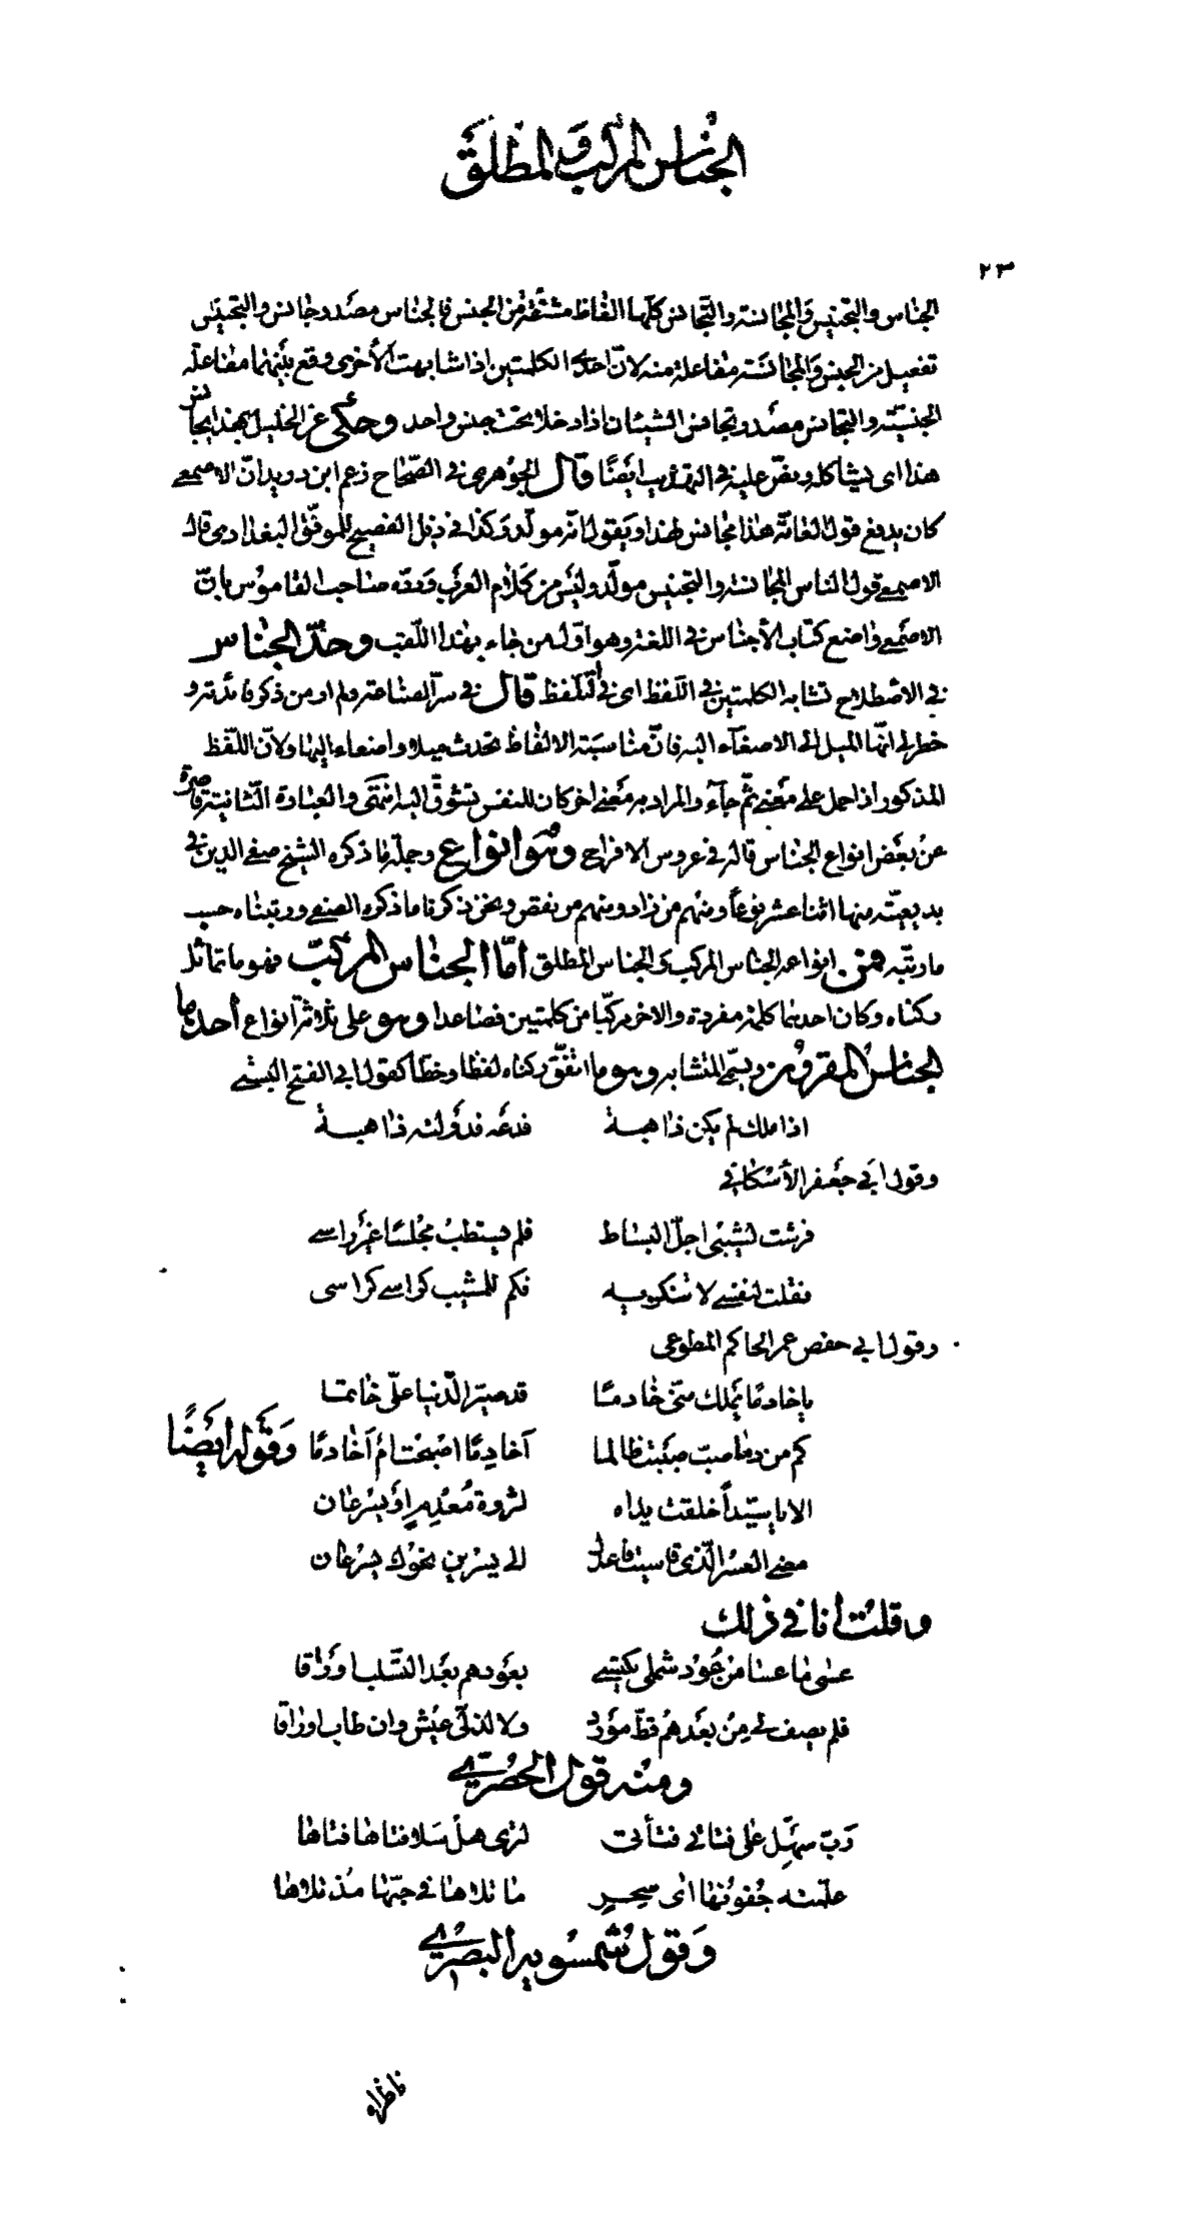 الجناس المركب والمطلق
٢٣
الجناس والتجنيس والمجانسة والتجانس كلها الفاظ مشتقة من الجنس فالجناس مصدر جانس والتجنيس
تفعيل من الجنس والمجانسة مفاعلة منه لانّ احدى الكلمتين اذا شابهت الأخرى وقع بينهما مفاعلة
الجنسيّة والتجانس مصدر وتجانس الشيئان اذا دخلا تحت جنس واحد وحكى عن الخليل بهذا يجانس
هذا اى يشاكله ونصّ عليه فى التهذيب ايضًا قال الجوهرى فى الصّحاح زعم ابن دريد انّ الاصمعى
كان يدفع قول العامّة هذا مجانس لهذا ويقول انّه مولّد وكذا فى ذيل الفصيح للموفّق البغدادى قال
الاصمعى قول الناس المجانسة والتجنيس مولّد وليس من كلام العرب وردّه صاحب القاموس بانّ
الاصمعى واضع كتاب الأجناس فى اللغة وهو اوّل من جاء بهذا اللّقب وحدّ الجناس
فى الاصطلاح تشابه الكلمتين فى اللفظ اى فى التلفّظ قال فى سرّ الصناعة ولم ار من ذكر فائدته و
خطر لى انّها الميل الى الاصغآء اليه فانّ مناسبة الالفاظ تحدث ميلا واصغاء اليها ولانّ اللّفظ
المذكور اذا حمل على معنى ثمّ جآء والمراد به معنى اخر كان للنفس تشوّق اليه انتهى والعبارة الثّانية قاصرة
عن بعض انواع الجناس قاله فى عروس الافراح وهو انواع وجملة ما ذكره الشيخ صفى الدين فى
بديعيّته منها اثنا عشر نوعاً ومنهم من زاد ومنهم من نقص ونحن ذكرنا ما ذكره الصفى ورتبناه حسب
ما رتّبه فمن انواعه الجناس المركب والجناس المطلق أمّا الجناس المركّب فهو ما تماثل
ركناه وكان احدهما كلمة مفردة والاخر مركّبا من كلمتين فصاعدا وهو على ثلاثة انواع أحدها
الجناس المقرون ويسمّى المتشابه وهو ما اتفّق ركناه لفظا وخطّا كقول ابى الفتح البستى
اذا ملك لم يكن ذا هبة فدعه فدولته ذاهبة
وقول ابى جعفر الأسكافى
فرشت لشيبى اجلّ البساط فلم يستطب مجلسًا غير راسى
فقلت لنفسى لا تنكريه فكم للمشيب كراسى كراسى
وقول ابى حفص عمر الحاكم المطوعى
ياخادمًا يملك منّى خادمًا قد صيّر الدّنيا علىّ خاتما
كم من دم صبّ صببت ظالما آخا دمًا اصبحت ام آخادمًا وقوله ايضًا
الا يا سيّداً خلقت يداه لثروة معدم او يسر عان
مضى العسر الّذى قاسيت فاعدل الى يسرين نحوك يسرعان
وقلت أنا فى ذلك
عسى ما عسا من عود شملى يكتسى بعودهم بعد التسلّب اوراقا
فلم يصف لى من بعدهم قطّ مورد ولا لذّ لى عيش وان طاب اوراقا
ومنه قول الحصرى
ربّ سهّل على فتاتى فتأتى لترى هل سلا فتاها فتاها
علّمته جفونها اى سحر ما تلاها فى حبّها مذ تلاها
وقول شمسويه البصرى
ناظراه